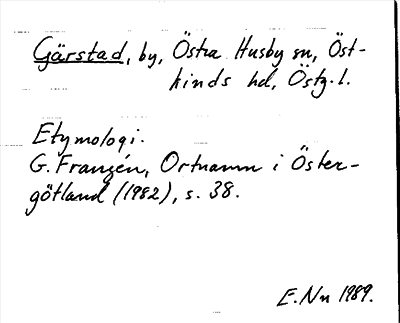 Gärstad, by, Östra Husby sn, Öst-
kinds hd, Östg. l.
Etymologi.
G. Franzén, Ortnamn i Öster-
götland (1982), s. 38.
E. Nn 1989.